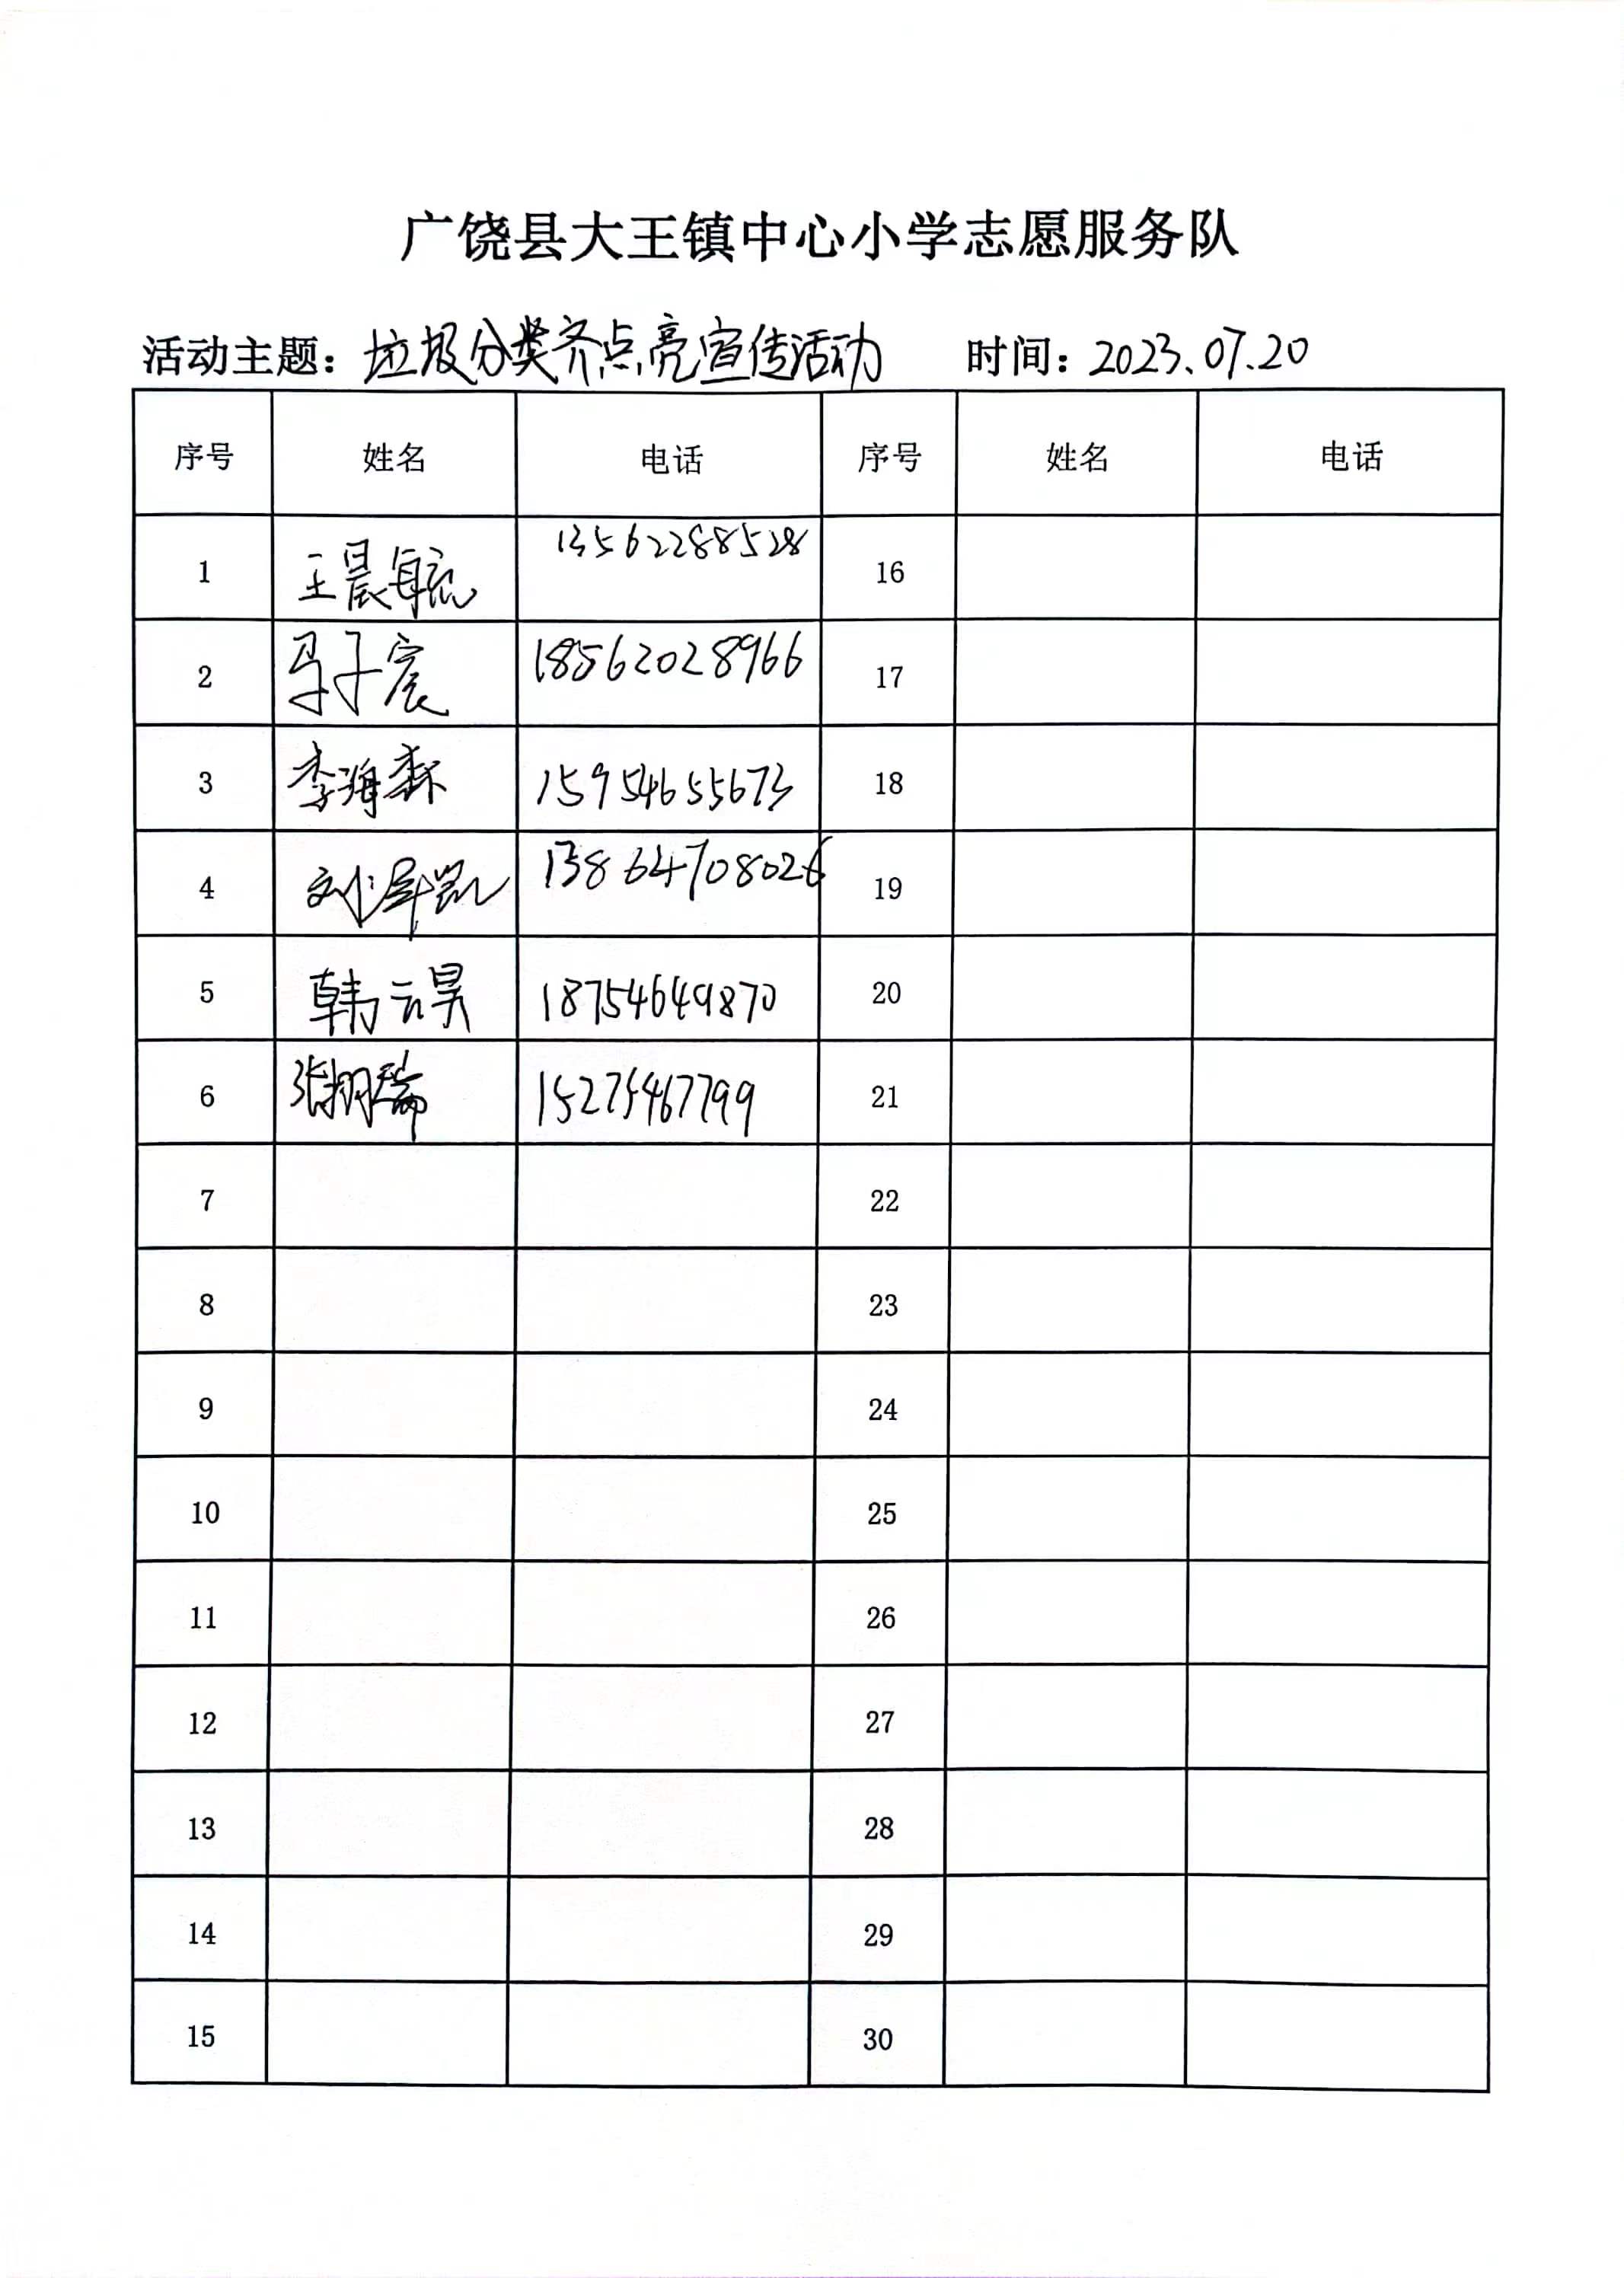 广饶县大王镇中心小学志愿服务队
活动主题：垃圾分类齐点亮宣传活动 时间：2023.07.20
序号 姓名 电话 序号 姓名 电话
1 王晨毓 13562288528 16
2 马子宸 18562028966 17
3 李海森 15954655673 18
4 刘泽凯 13864708026 19
5 韩云昊 18754649870 20
6 张栩瑞 15275467799 21
7 22
8 23
9 24
10 25
11 26
12 27
13 28
14 29
15 30